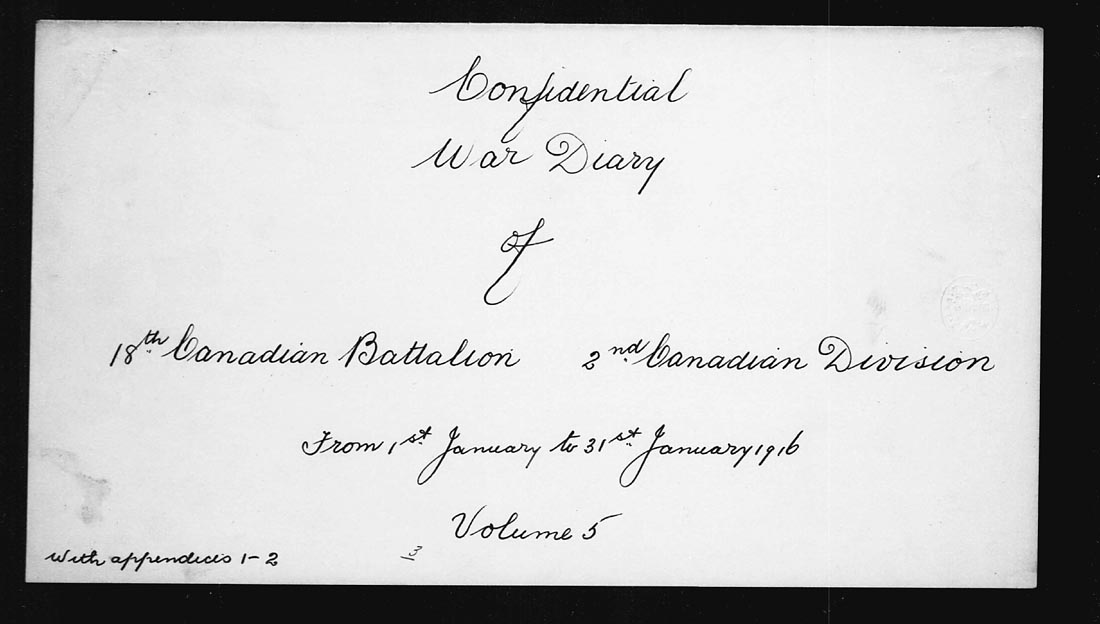 Confidential
War Diary
of
18th Canadian Battalion 2nd Canadian Division
From 1st January to 31st January 1916
Volume 5
With appendices 1-2
3